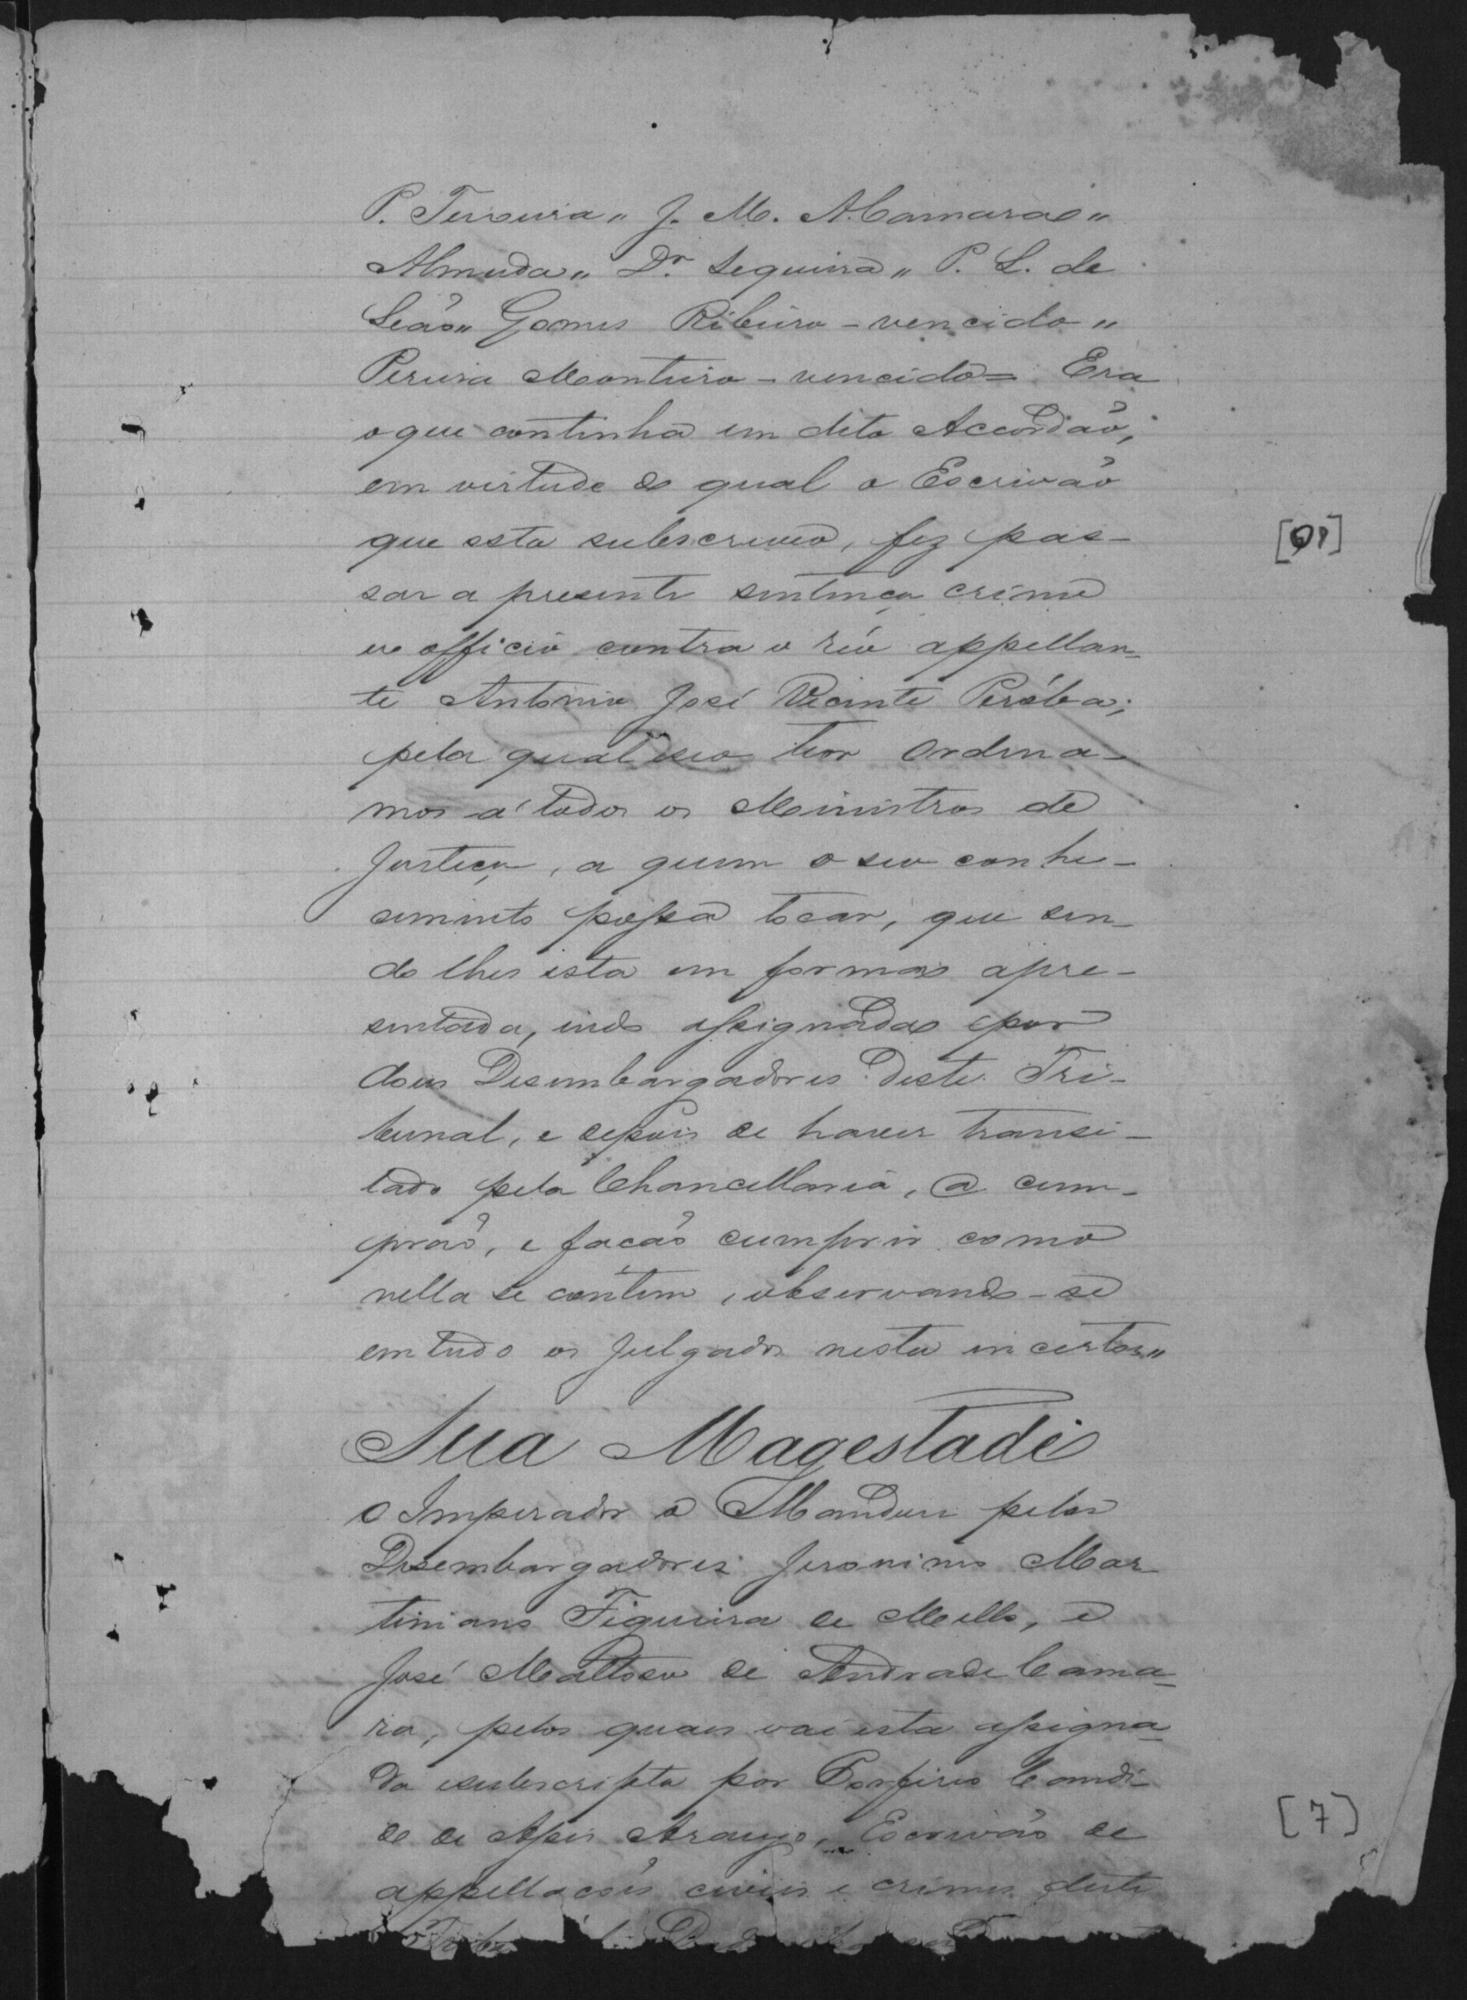 P. Teixeira " J. M. A Camara "
Almeida " Dr. Sequeira " P. L. de
Leão " Gomes Ribeiro - vencido "
Pereira Monteiro - vencido = Era
o que continha em dito Accordão,
em virtude do qual o Escrivão
que esta subscreveo, fez pas-
sar a presente sentença crime
ex officio contra o réo appellan-
te Antonio José Vicente Peróba;
pela qual e seo teor ordena-
mos a' todos os Ministros de
Justiça, a quem o seu conhe-
cimento possa tocar, que sen-
do lhes esta em forma apre-
sentada, indo assignada por
dous Desembargadores deste Tri-
bunal, e depois de haver transi-
tado pela Chancellaria, a cum-
prão, e facão cumprir como
nella se contem, observando-se
em tudo os julgados nesta incertos "
Sua Magestade
O Imperador o Mandou pelos
Desembargadores Jeronimo Mar-
tiniano Figueira de Mello, e
José Mattoso de Andrade Cama-
ra, pelos quaes vai esta assigna-
da e subscripta por Porfirio Candi-
do de Assis Araujo, Escrivão de
appellações civeis e crimes deste
[7]